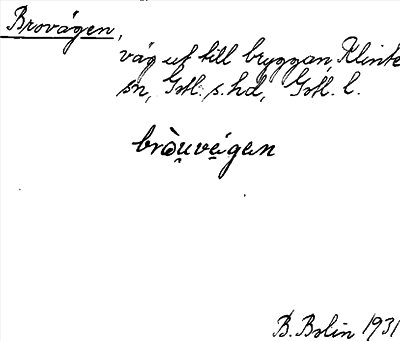 Brovägen,
väg ut till bryggan, Klinte
sn, Gotl. s. hd, Gotl. l.
bròu̯vẹgen
B. Bolin 1931